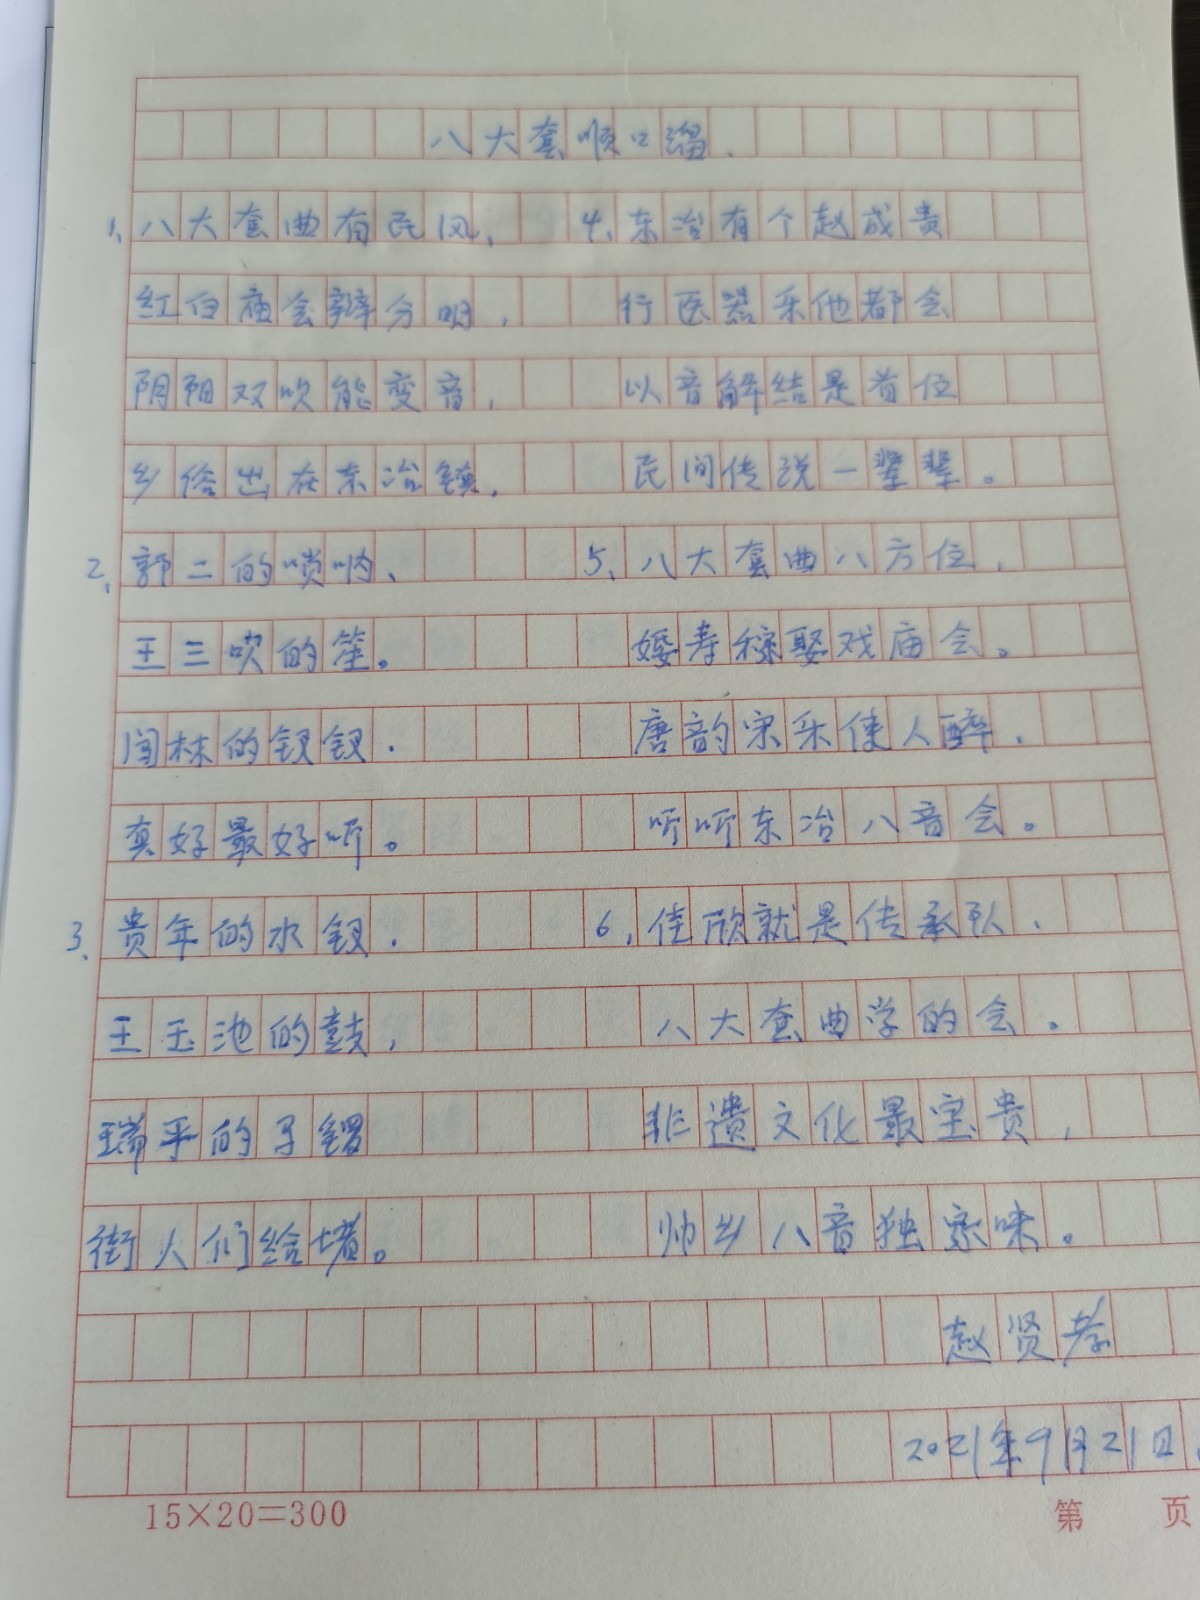 八大套顺口溜、
1、八大套曲有民风、
红白庙会辩分明，
阴阳双吹能变音，
乡俗出在东冶镇，
2、郭二的唢呐、
王三吹的笙。
闫林的钗钗．
真好最好听。
3、贵年的水钗．
王玉池的鼓，
瑞平的手锣
街人们给堵。
4、东冶有个赵成贵
行医器乐他都会
以音解结是首位
民间传说一辈辈。
5、八大套曲八方位，
婚寿稼娶戏庙会。
唐韵宋乐使人醉，
听听东冶八音会。
6、佳欣就是传承队、
八大套曲学的会。
非遗文化最宝贵，
帅乡八音独家味。
赵贤孝
2021年9月21日、
15×20=300
第 页